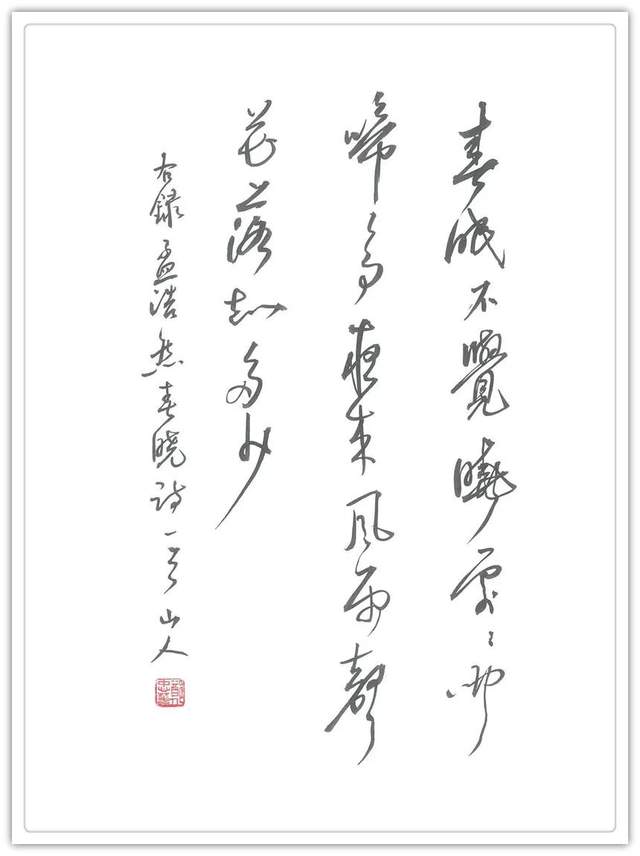 春眠不覺曉處々聞
啼鳥夜来風雨聲
花落知多少
右録孟浩然春曉詩一首山人